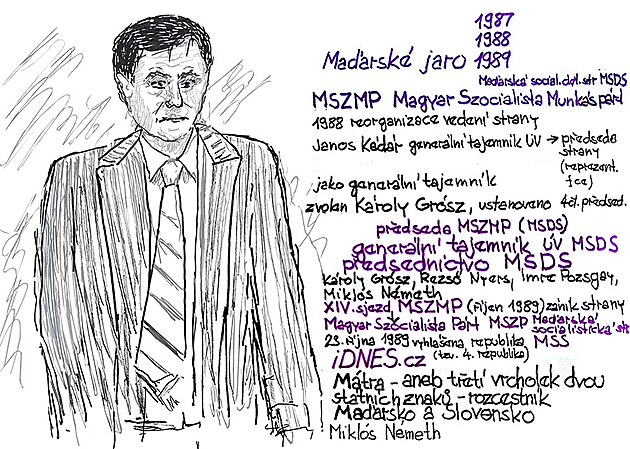 1987
1988
Maďarské jaro 1989
Maďarská social. děl. str MSDS
MSZMP Magyar Szocialista Munkás párt
1988 reorganizace vedení strany
Janos Kádár generální tajemník ÚV → předseda
strany
(reprezent.
fce)
jako generální tajemník
zvolen Károly Grósz, ustanoveno 4čl. předsed.
předseda MSZMP (MSDS)
generální tajemník ÚV MSDS
předsednictvo MSDS
Károly Grósz, Rezső Nyers, Imre Pozsgay,
Miklós Németh
XIV. sjezd MSZMP (říjen 1989) zánik strany
Magyar Szocialista Párt MSZP Maďarská
socialistická str
23. října 1989 vyhlášena republika MSS
iDNES.cz (tzv. 4. republika)
Mátra - aneb třetí vrcholek dvou
státních znaků - rozcestník
Maďarsko a Slovensko
Miklós Németh